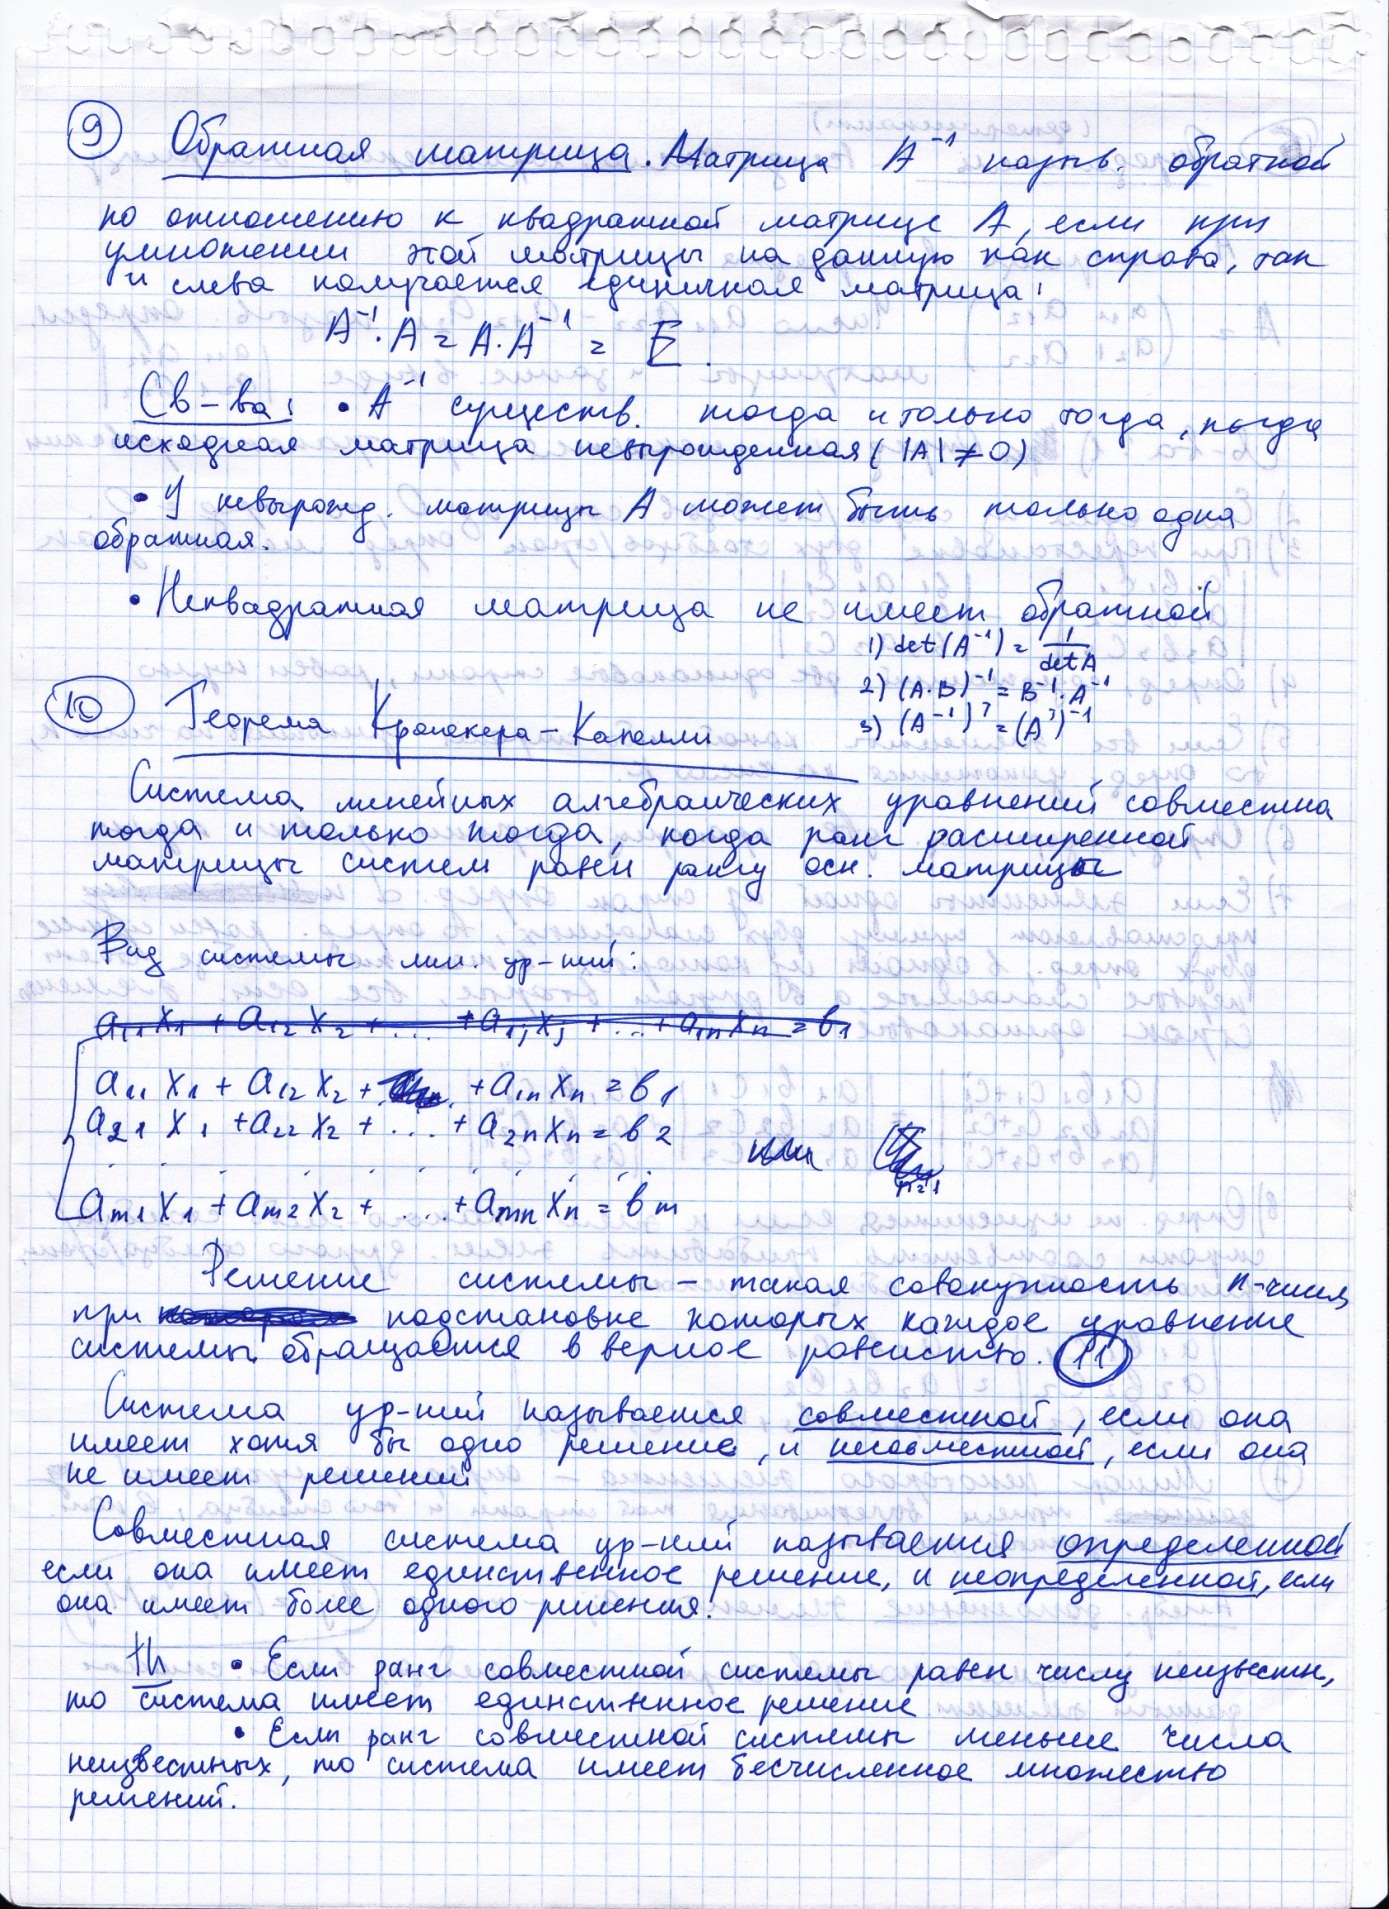 9 Обратная матрица. Матрица A⁻¹ назыв. обратной
по отношению к квадратной матрице A, если при
умножении этой матрицы на данную как справа, так
и слева получается единичная матрица:
A⁻¹·A = A·A⁻¹ = E.
Св-ва: • A⁻¹ существ. тогда и только тогда, когда
исходная матрица невырожденная (|A| ≠ 0)
• У невырожд. матрицы A может быть только одна
обратная.
• Неквадратная матрица не имеет обратной
1) det(A⁻¹) = 1/detA
2) (A·B)⁻¹ = B⁻¹·A⁻¹
3) (A⁻¹)ᵀ = (Aᵀ)⁻¹
10 Теорема Кронекера-Капелли
Система линейных алгебраических уравнений совместна
тогда и только тогда, когда ранг расширенной
матрицы систем равен рангу осн. матрицы
Вид системы лин. ур-ний:
a₁₁x₁ + a₁₂x₂ + ... + a₁ⱼxⱼ + ... + a₁ₙxₙ = b₁
a₁₁x₁ + a₁₂x₂ + ... + a₁ₙxₙ = b₁
a₂₁x₁ + a₂₂x₂ + ... + a₂ₙxₙ = b₂
. . . . . . . . . . .
или
aₘ₁x₁ + aₘ₂x₂ + ... + aₘₙxₙ = bₘ
Решение системы – такая совокупность n-чисел,
при подстановке которых каждое уравнение
системы обращается в верное равенство. 11
Система ур-ний называется совместной, если она
имеет хотя бы одно решение, и несовместной, если она
не имеет решений
Совместная система ур-ний называется определенной
если она имеет единственное решение, и неопределенной, если
она имеет более одного решения.
th • Если ранг совместной системы равен числу неизвестн,
то система имеет единственное решение
• Если ранг совместной системы меньше числа
неизвестных, то система имеет бесчисленное множество
решений.